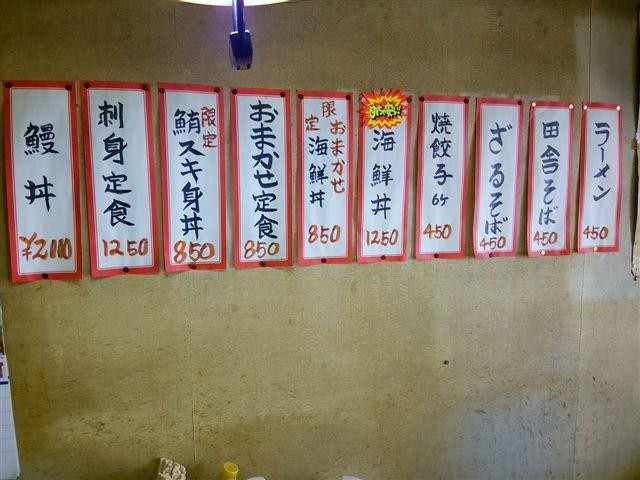 ラーメン
450
田舎そば
450
ざるそば
450
焼餃子6ケ
450
海鮮丼
1250
限定
おまかせ
海鮮丼
850
おまかせ定食
850
限定
鮪スキ身丼
850
刺身定食
1250
鰻丼